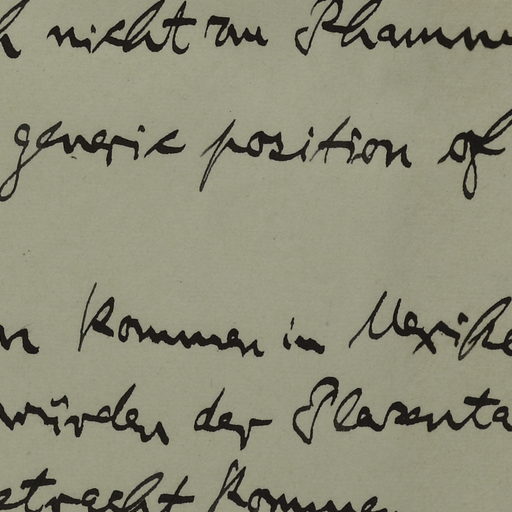 h nicht zu Rhamnu
generic position of
n kommen in Mexiko
würden der Plazenta
etracht kommen